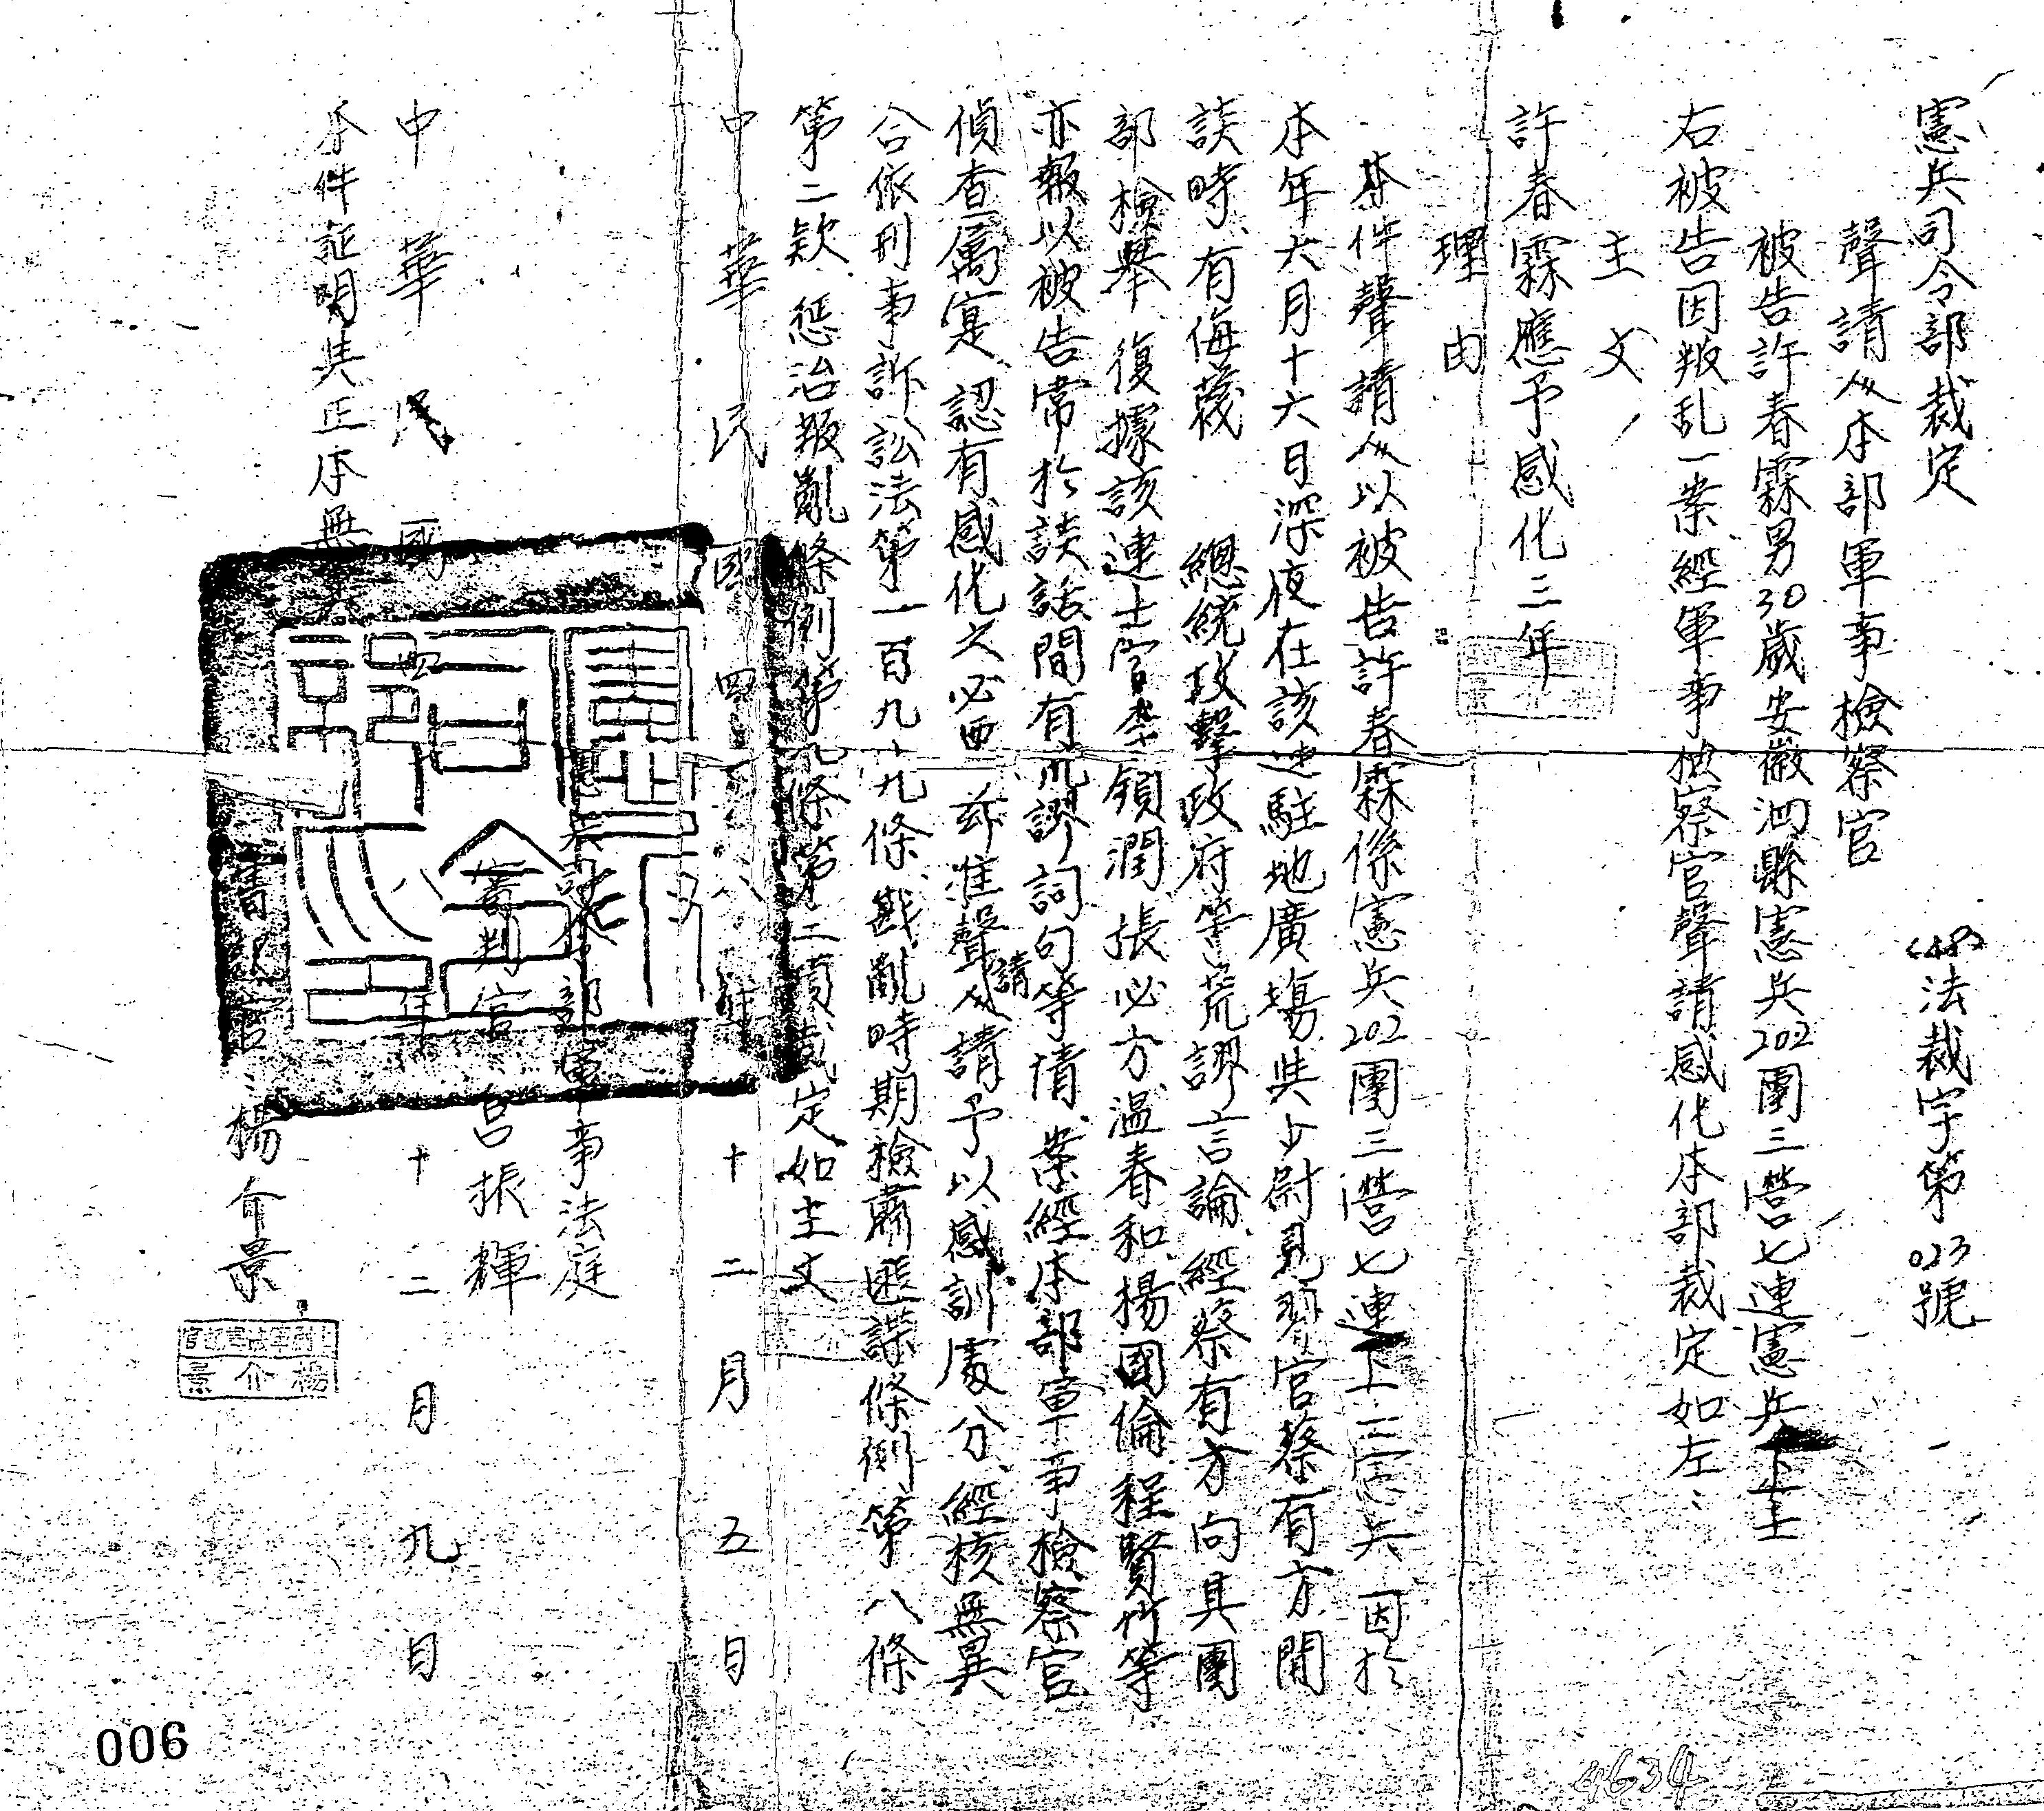 憲兵司令部裁定
(48)法裁字第023號
聲請人本部軍事檢察官
被告許春霖男30歲安徽泗縣憲兵202團三營七連憲兵上士
右被告因叛乱一案經軍事檢察官聲請感化本部裁定如左:
主文
許春霖應予感化三年
理由
本件聲請人以被告許春霖係憲兵202團三營七連上士憲兵因於
本年六月十六日深夜在該連駐地廣場與少尉見習官蔡有方閒
談時、有侮蔑 總統攻擊政府等荒謬言論、經蔡有方向其團
部檢舉、復據該連士官李領潤、張必方、温春和、楊國倫、程賢竹等
亦報以被告常於談話間有荒謬詞句等情、案經本部軍事檢察官
偵查屬寔、認有感化之必要、茲准聲請人請予以感訓處分、經核無異
合依刑事訴訟法第一百九十九條、戡亂時期檢肅匪諜條例第八條
第二款、懲治叛亂條例第九條第二項裁定如主文
中華民國四十八年十二月五日
憲兵司令部軍事法庭
審判官 呂振輝
中華民國四十八年十二月九日
本件証明與正本無異
書記官 楊介景
楊介景
006
4634